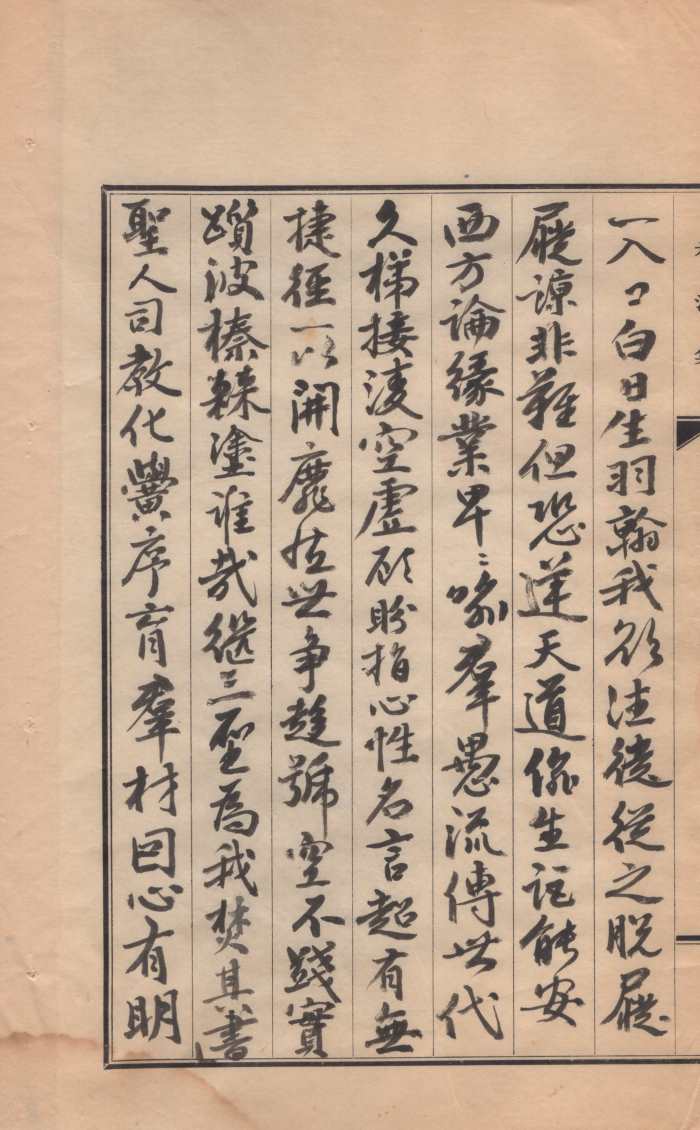 一入口白日生羽翰我欲往從之脫屣
屣諒非難但恐逆天道偷生詎能安
西方論緣業卑〻喻羣愚流傳世代
久梯接凌空虛顧盼指心性名言超有無
捷徑一以開靡然世爭趨號空不踐實
躓彼榛棘塗誰哉繼三聖為我焚其書
聖人司教化黌序育羣材因心有明